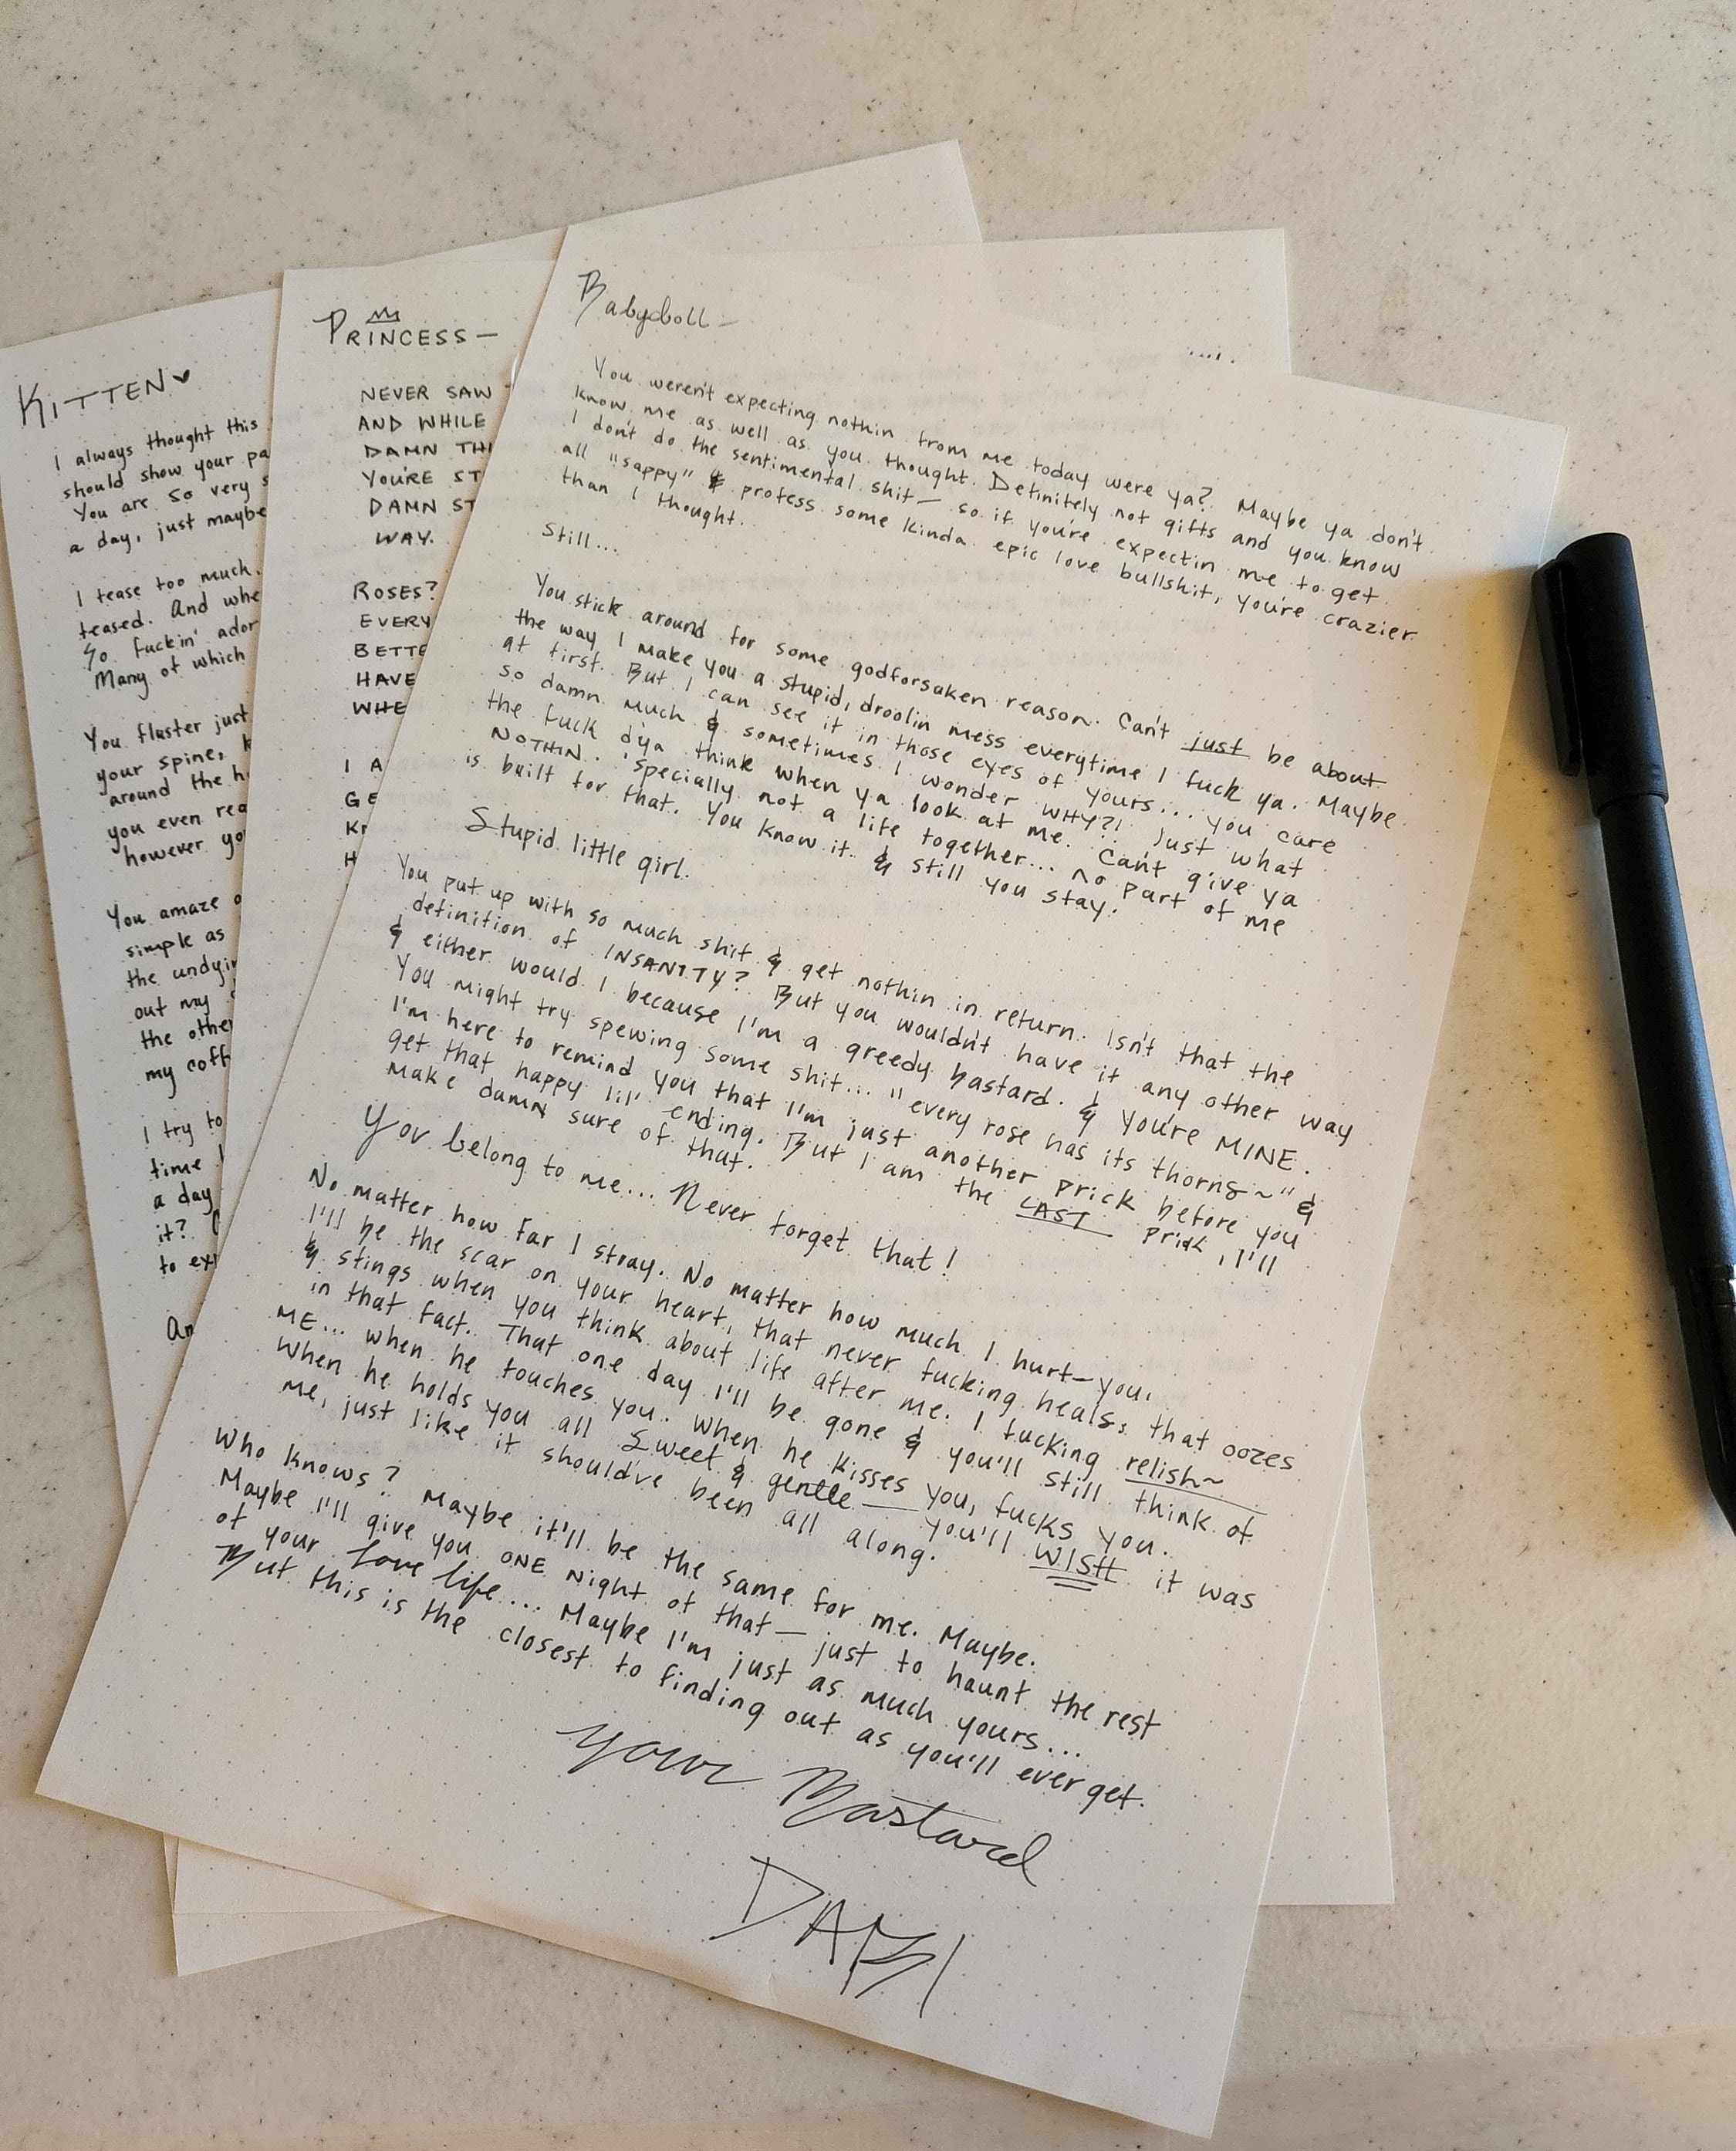 KITTEN♥
I always thought this
should show your pa
You are so very s
a day, just maybe
I tease too much.
teased. And whe
So fuckin' ador
Many of which
You fluster just
your spine, k
around the h
you even rea
however yo
You amaze o
simple as
the undyin
out my
the other
my coff
I try to
time I
a day
it?
to exp
An
PRINCESS—
NEVER SAW
AND WHILE
DAMN THI
YOU'RE ST
DAMN ST
WAY.
ROSES?
EVERY
BETTE
HAVE
WHE
I A
GE
Kn
H
Babydoll—
You weren't expecting nothin from me today were ya? Maybe ya don't
know me as well as you thought. Definitely not gifts and you know
I don't do the sentimental shit— so if you're expectin me to get
all "sappy" & profess some kinda epic love bullshit, you're crazier
than I thought.
Still...
You stick around for some godforsaken reason. Can't just be about
the way I make you a stupid, droolin mess everytime I fuck ya. Maybe
at first. But I can see it in those eyes of yours... you care
so damn much & sometimes I wonder WHY?! Just what
the fuck d'ya think when ya look at me. Can't give ya
NOTHIN. 'specially not a life together... no part of me
is built for that. You know it & still you stay.
Stupid little girl.
You put up with so much shit & get nothin in return. Isn't that the
definition of INSANITY? But you wouldn't have it any other way
& either would I because I'm a greedy bastard. & You're MINE.
You might try spewing some shit... "every rose has its thorns~" &
I'm here to remind you that I'm just another prick before you
get that happy lil' ending. But I am the LAST prick, I'll
make damn sure of that.
You belong to me... Never forget that!
No matter how far I stray. No matter how much I hurt—you.
I'll be the scar on your heart, that never fucking heals, that oozes
& stings when you think about life after me. I fucking relish~
in that fact. That one day I'll be gone & you'll still think of
ME... when he touches you. When he kisses you, fucks you.
When he holds you all sweet & gentle— you'll WISH it was
me, just like it should've been all along.
Who knows? Maybe it'll be the same for me. Maybe.
Maybe I'll give you ONE Night of that— just to haunt the rest
of your love life... Maybe I'm just as much yours...
But this is the closest to finding out as you'll ever get.
Your Bastard
DABI